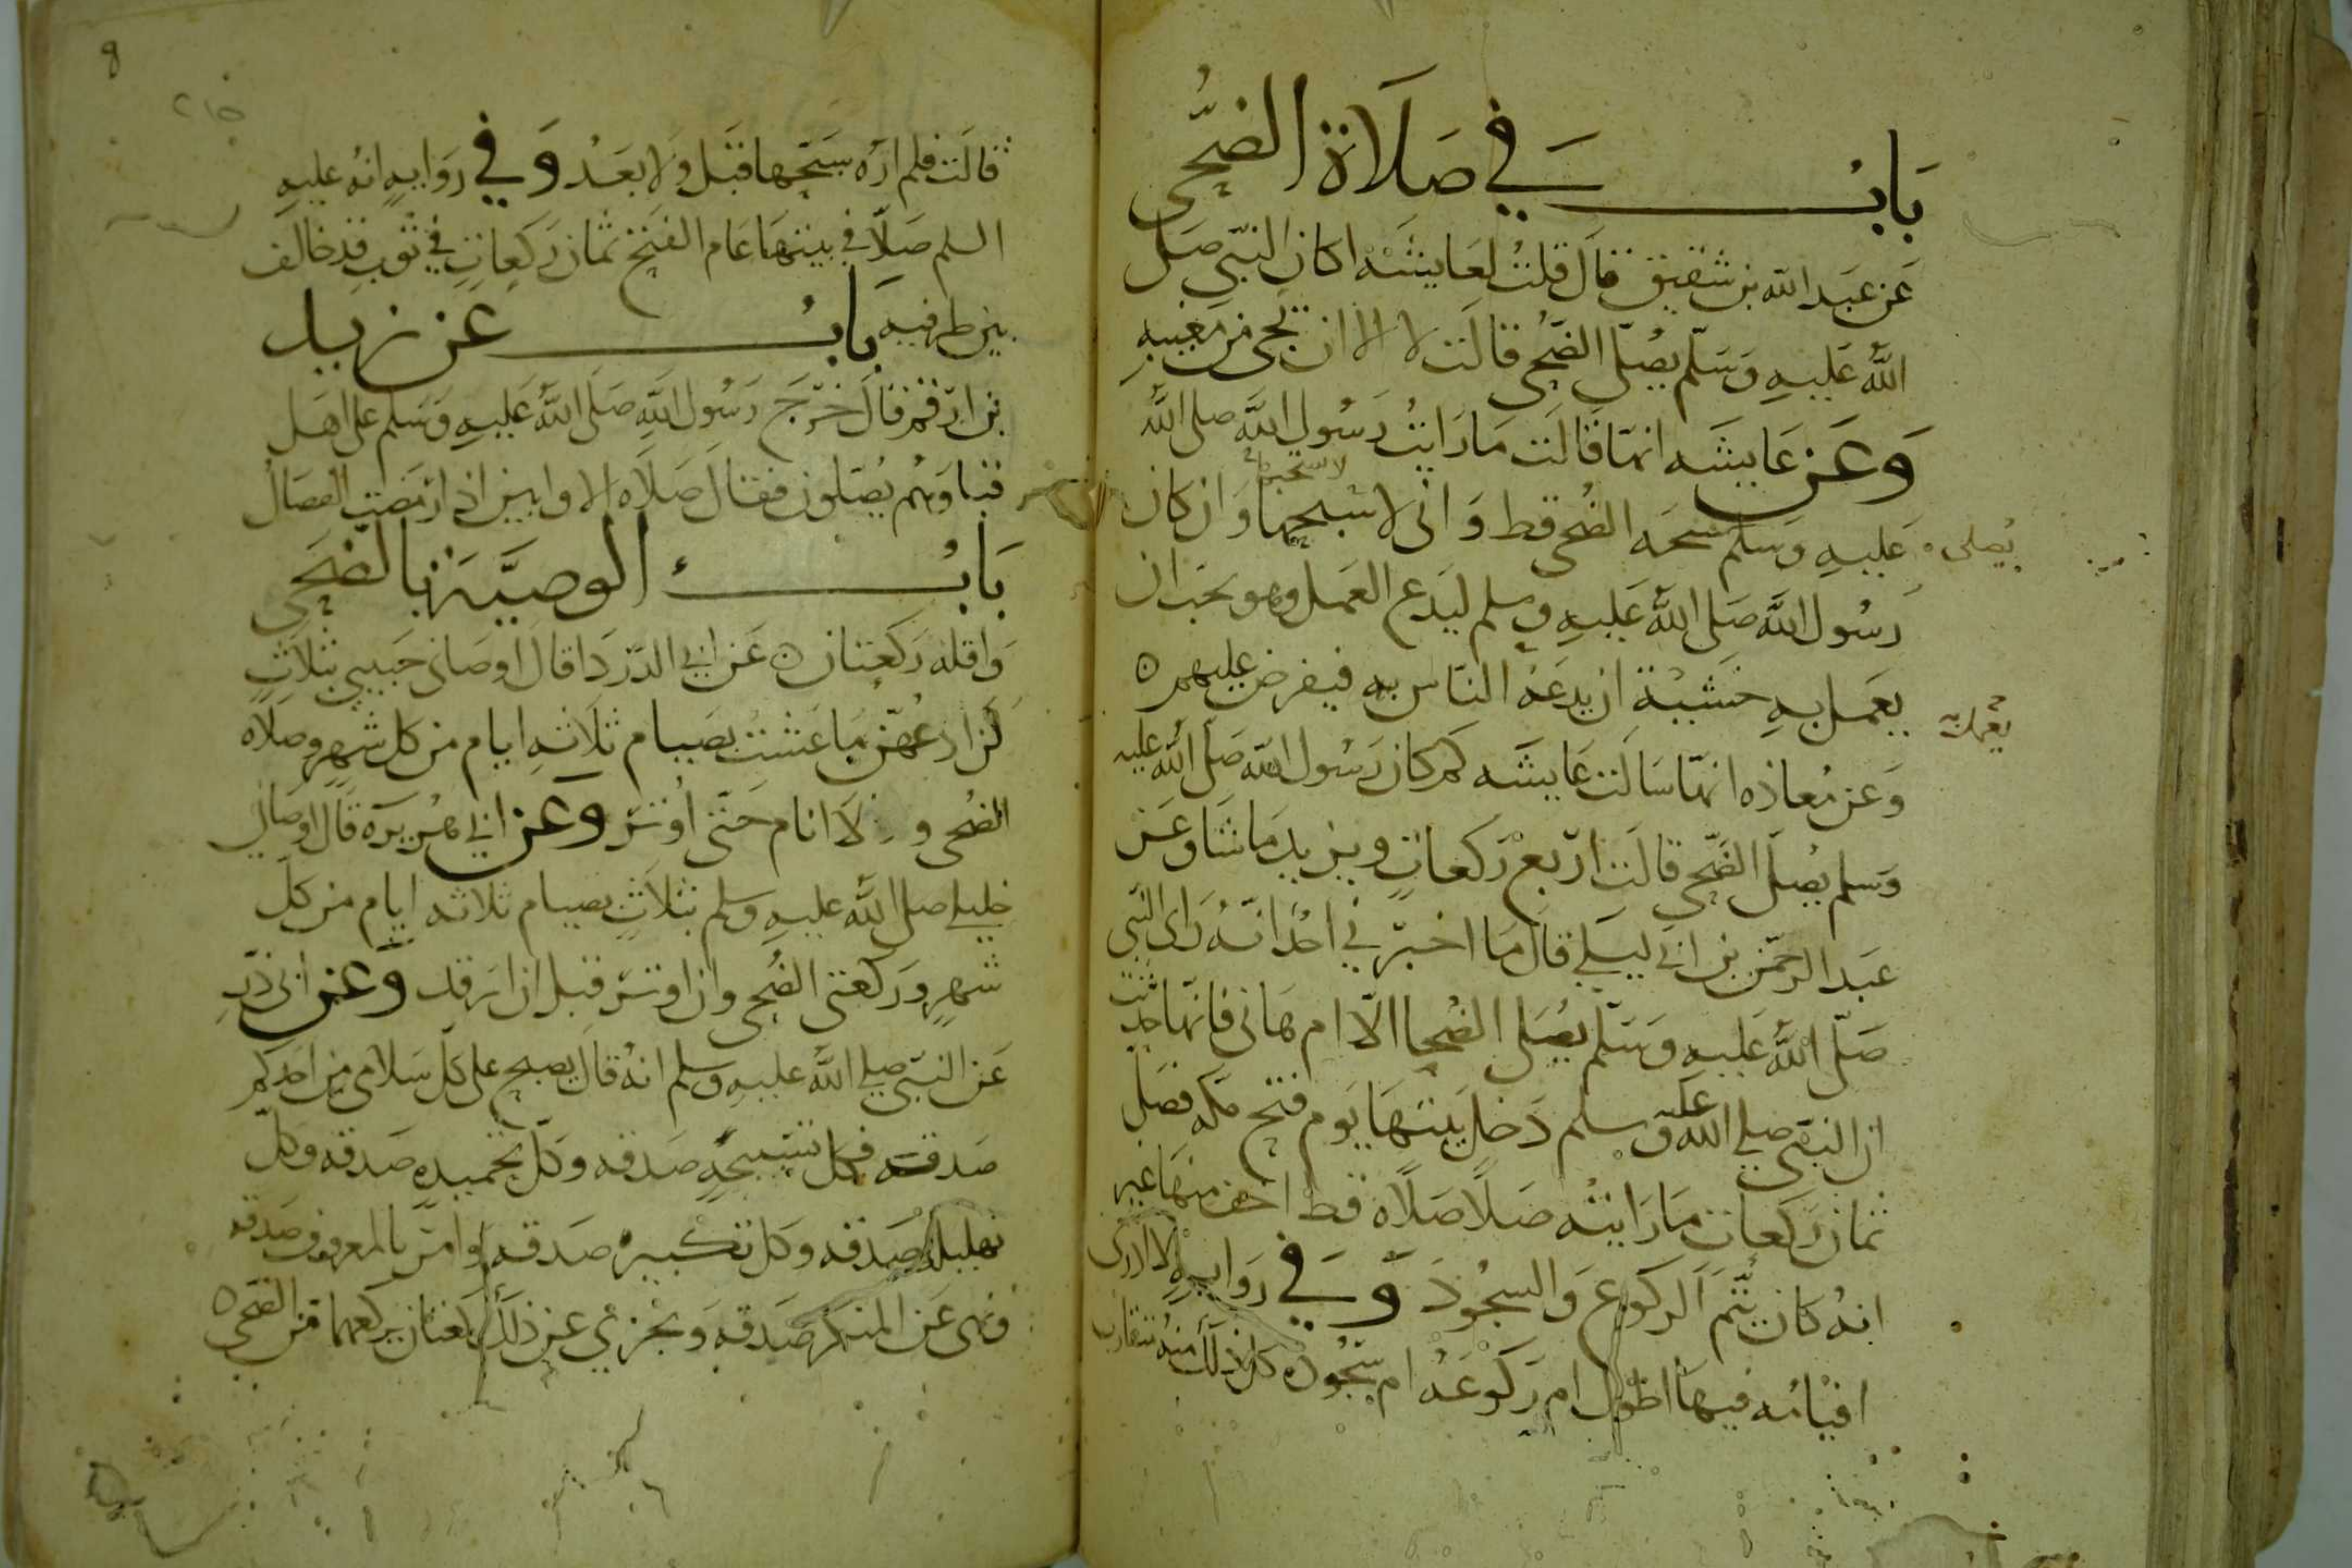 باب في صلاة الضحى
عن عبد الله بن شقيق قال قلت لعايشه اكان النبي صلى
الله عليه وسلم يصلي الضحى قالت لا الا ان يجي من مغيبه
وعن عايشه انها قالت ما رايت رسول الله صلى الله
عليه وسلم سبحه الضحى قط واني لاسبحها وان كان
يصلي
رسول الله صلى الله عليه وسلم ليدع العمل وهو يحب ان
يعمل به خشية ان يدعه الناس به فيفرض عليهم
يعمل به
وعن معاذه انها سالت عايشه كم كان رسول الله صلى الله عليه
وسلم يصلي الضحى قالت اربع ركعات ويزيد ما شا وعن
عبد الرحمن بن ابي ليلى قال ما اخبرني احد انه راى النبي
صلى الله عليه وسلم يصلى الضحا الا ام هاني فانها حدثت
ان النبي صلى الله عليه وسلم دخل بيتها يوم فتح مكه فصلى
ثمان ركعات ما رايته صلا صلاة قط اخف منها غير
انه كان يتم الركوع والسجود وفي روايه لا ادرى
اقيامه فيها اطول ام ركوعه ام سجوده كل ذلك منه متقارب
8
قالت فلم اره سبحها قبل ولا بعد وفي روايه انه عليه
السلم صلا في بيتها عام الفتح ثمان ركعات في ثوب قد خالف
بين طرفيه باب عن زيد
بن ارقم قال خرج رسول الله صلى الله عليه وسلم على اهل
قبا وهم يصلون فقال صلاه الاوابين اذا ارمضت الفصال
باب الوصية بالضحى
واقله ركعتان عن ابي الدردا قال اوصاني حبيبي بثلاث
لن ادعهن ما عشت بصيام ثلاثه ايام من كل شهر وصلاه
الضحى و لا انام حتى اوتر وعن ابي هريرة قال اوصاني
خليلي صلى الله عليه وسلم بثلاث بصيام ثلاثه ايام من كل
شهر وركعتي الضحى وان اوتر قبل ان ارقد وعن ابي ذر
عن النبي صلى الله عليه وسلم انه قال يصبح على كل سلامى من احدكم
صدقه فكل تسبيحه صدقه وكل تحميده صدقه وكل
تهليله صدقه وكل تكبيره صدقه وامر بالمعروف صدقه
ونهى عن المنكر صدقه ويجزي عن ذلك ركعتان يركعهما من الضحى